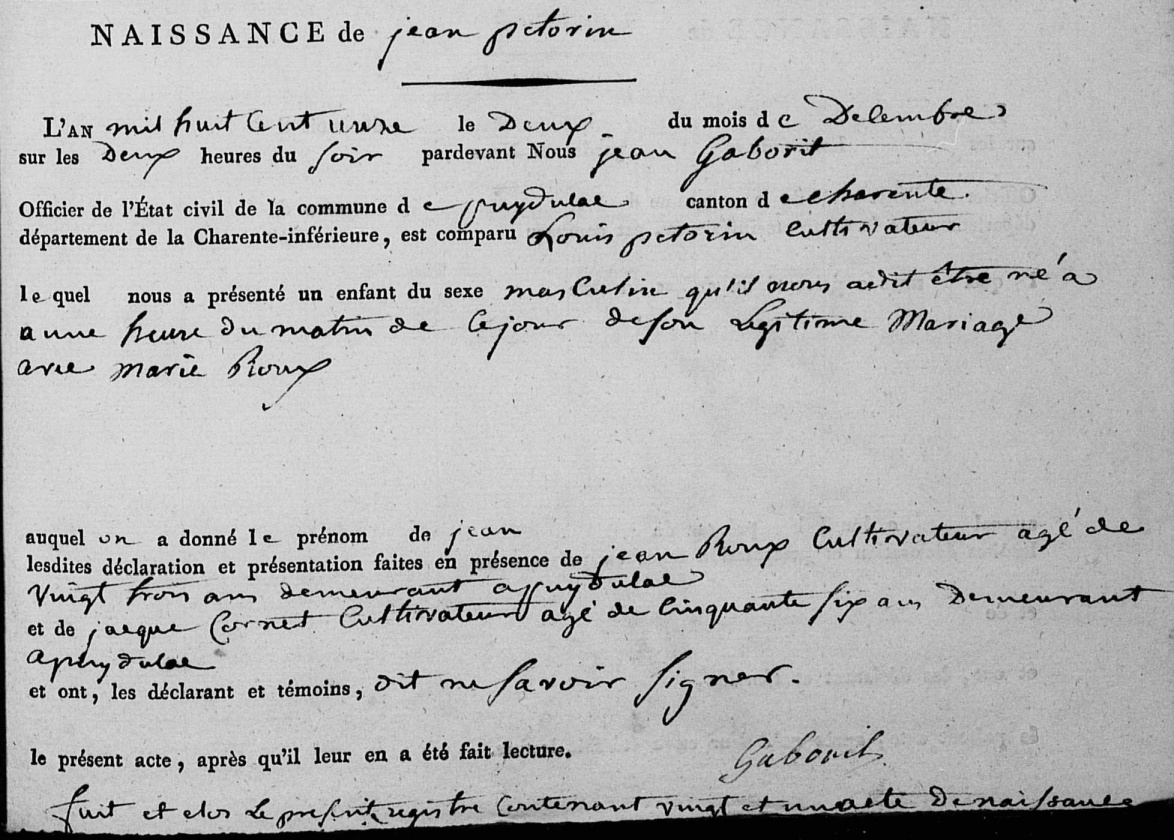 NAISSANCE de jean petorin
L'AN mil huit Cent unze le Deux du mois de Decembre
sur les Deux heures du soir pardevant Nous jean Gaborit
Officier de l'État civil de la commune de puydulac canton de charente.
département de la Charente-inférieure, est comparu Louis petorin Cultivateur
lequel nous a présenté un enfant du sexe masculin qu'il nous adit être né a
a une heure du matin de Cejour deson Legitime Mariage
avec marie Roux
auquel on a donné le prénom de jean
lesdites déclaration et présentation faites en présence de jean Roux Cultivateur agé de
vingt trois ans demeurant apuydulac
et de jacque Cornet Cultivateur agé de Cinquante six ans Demeurant
apuydulac
et ont, les déclarant et témoins, dit ne savoir signer.
le présent acte, après qu'il leur en a été fait lecture.
Gaborit
fait et clos Le present registre Contenant vingt et un acte De naissance